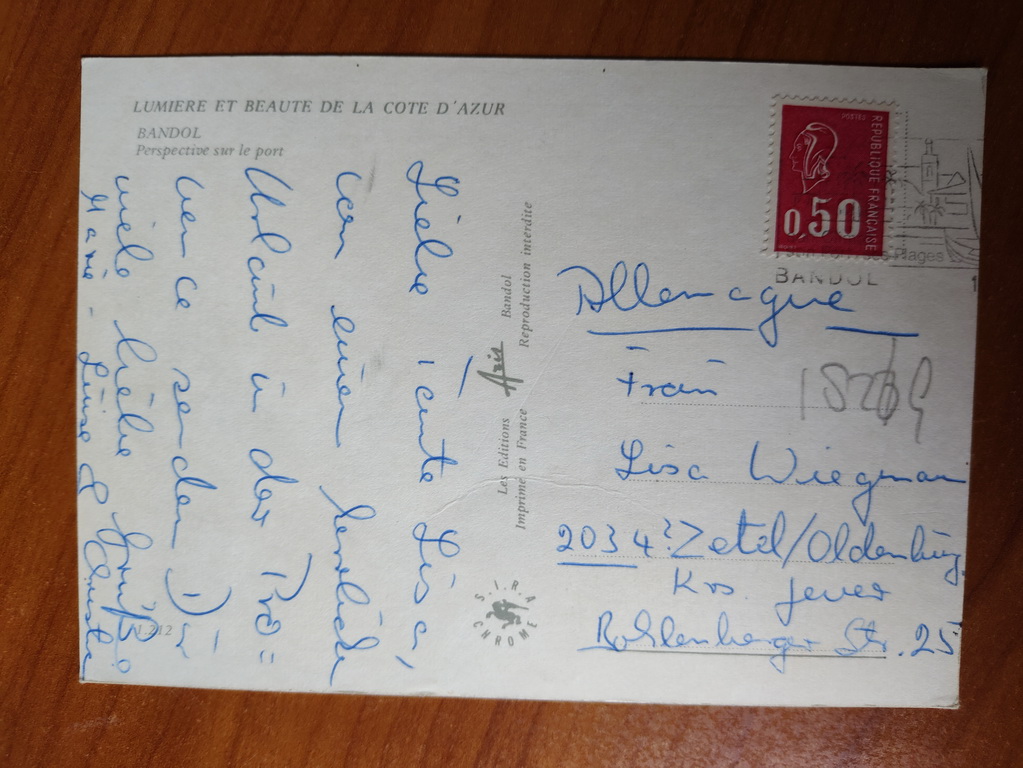 LUMIERE ET BEAUTE DE LA COTE D'AZUR
BANDOL
Perspective sur le port
Liebe Tante Lisa,
von einem
Urlaub in der Pro=
vence senden Dir
viele liebe Grüße
Marie-Luise &
1.212
Les Editions Aris Bandol
Imprimé en France Reproduction interdite
S.I.R.A
CHROME
REPUBLIQUE FRANÇAISE
0,50
Plages
BANDOL
Allemagne
Frau
18269
Lisa Wiegman
2034? Zetel/Oldenburg
Krs. Jever
Bohlenberger Str. 25